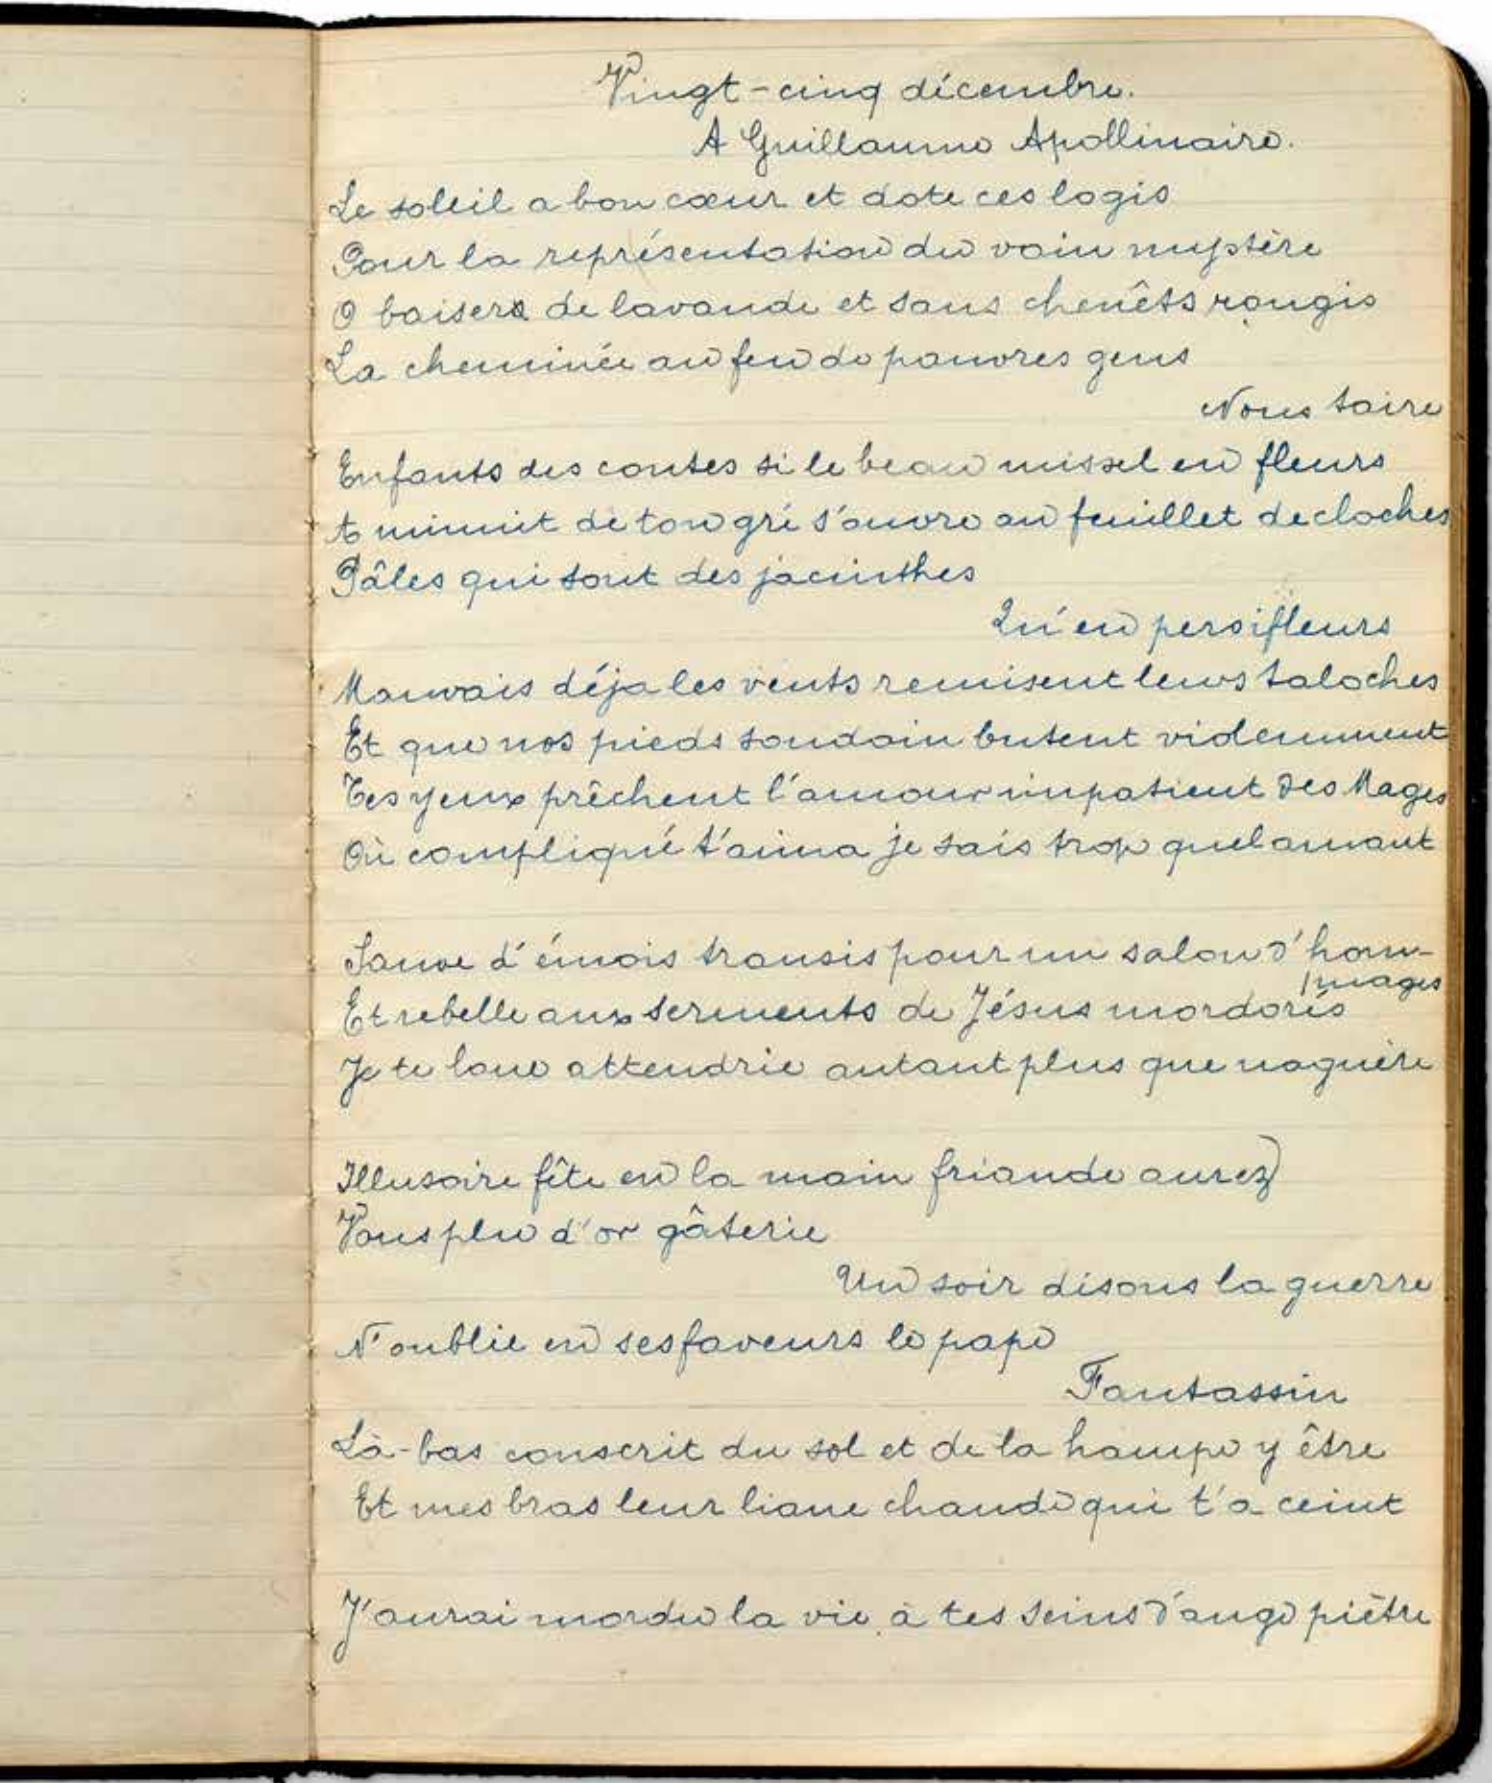 Vingt-cinq décembre.
A Guillaume Apollinaire.
Le soleil a bon cœur et dote ces logis
Pour la représentation du vain mystère
O baisers de lavande et sans chenêts rougis
La cheminée au feu de pauvres gens
Nous taire
Enfants des contes si le beau missel en fleurs
A minuit de ton gré s'ouvre au feuillet de cloches
Pâles qui sont des jacinthes
Qu'en persifleurs
Mauvais déja les vents remisent leurs taloches
Et que nos pieds soudain butent videmment
Tes yeux prêchent l'amour impatient des Mages
Où compliqué t'aima je sais trop quel amant
Sauve d'émois transis pour un salon d'hom-
mages
Et rebelle aux serments de Jésus mordorés
Je te loue attendrie autant plus que naguère
Illusoire fête en la main friande aurez
Vous plu d'or gâterie
Un soir disons la guerre
N'oublie en ses faveurs le pape
Fantassin
Là-bas conscrit du sol et de la hampe y être
Et mes bras leur liane chaude qui t'a ceint
J'aurai mordu la vie à tes seins d'ange piètre